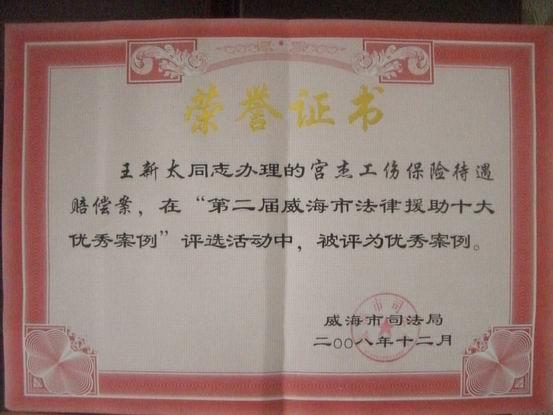 荣誉证书
王新太同志办理的宫杰工伤保险待遇
赔偿案，在“第二届威海市法律援助十大
优秀案例”评选活动中，被评为优秀案例。
威海市司法局
二〇〇八年十二月